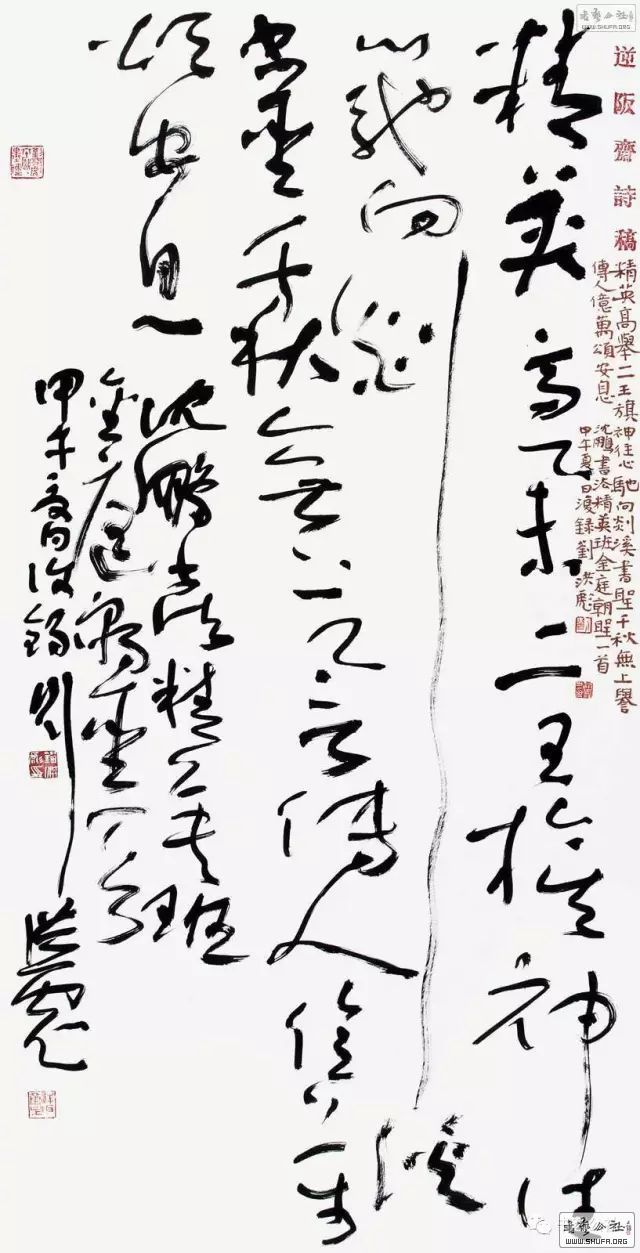 書藝公社
WWW.SHUFA.ORG
逆阪齋詩稿
精英高舉二王旗神往心馳向剡溪書聖千秋無上譽
傳人億萬頌安息 沈鵬書法精英班金庭朝聖一首
甲午夏日漫錄劉洪彪
精英高舉二王旗神往
心馳向剡溪
書聖千秋無上譽傳人億萬
頌安息
沈鵬書法精英班
金庭朝聖一首
甲午夏日漫錄劉洪彪
書藝公社
WWW.SHUFA.ORG